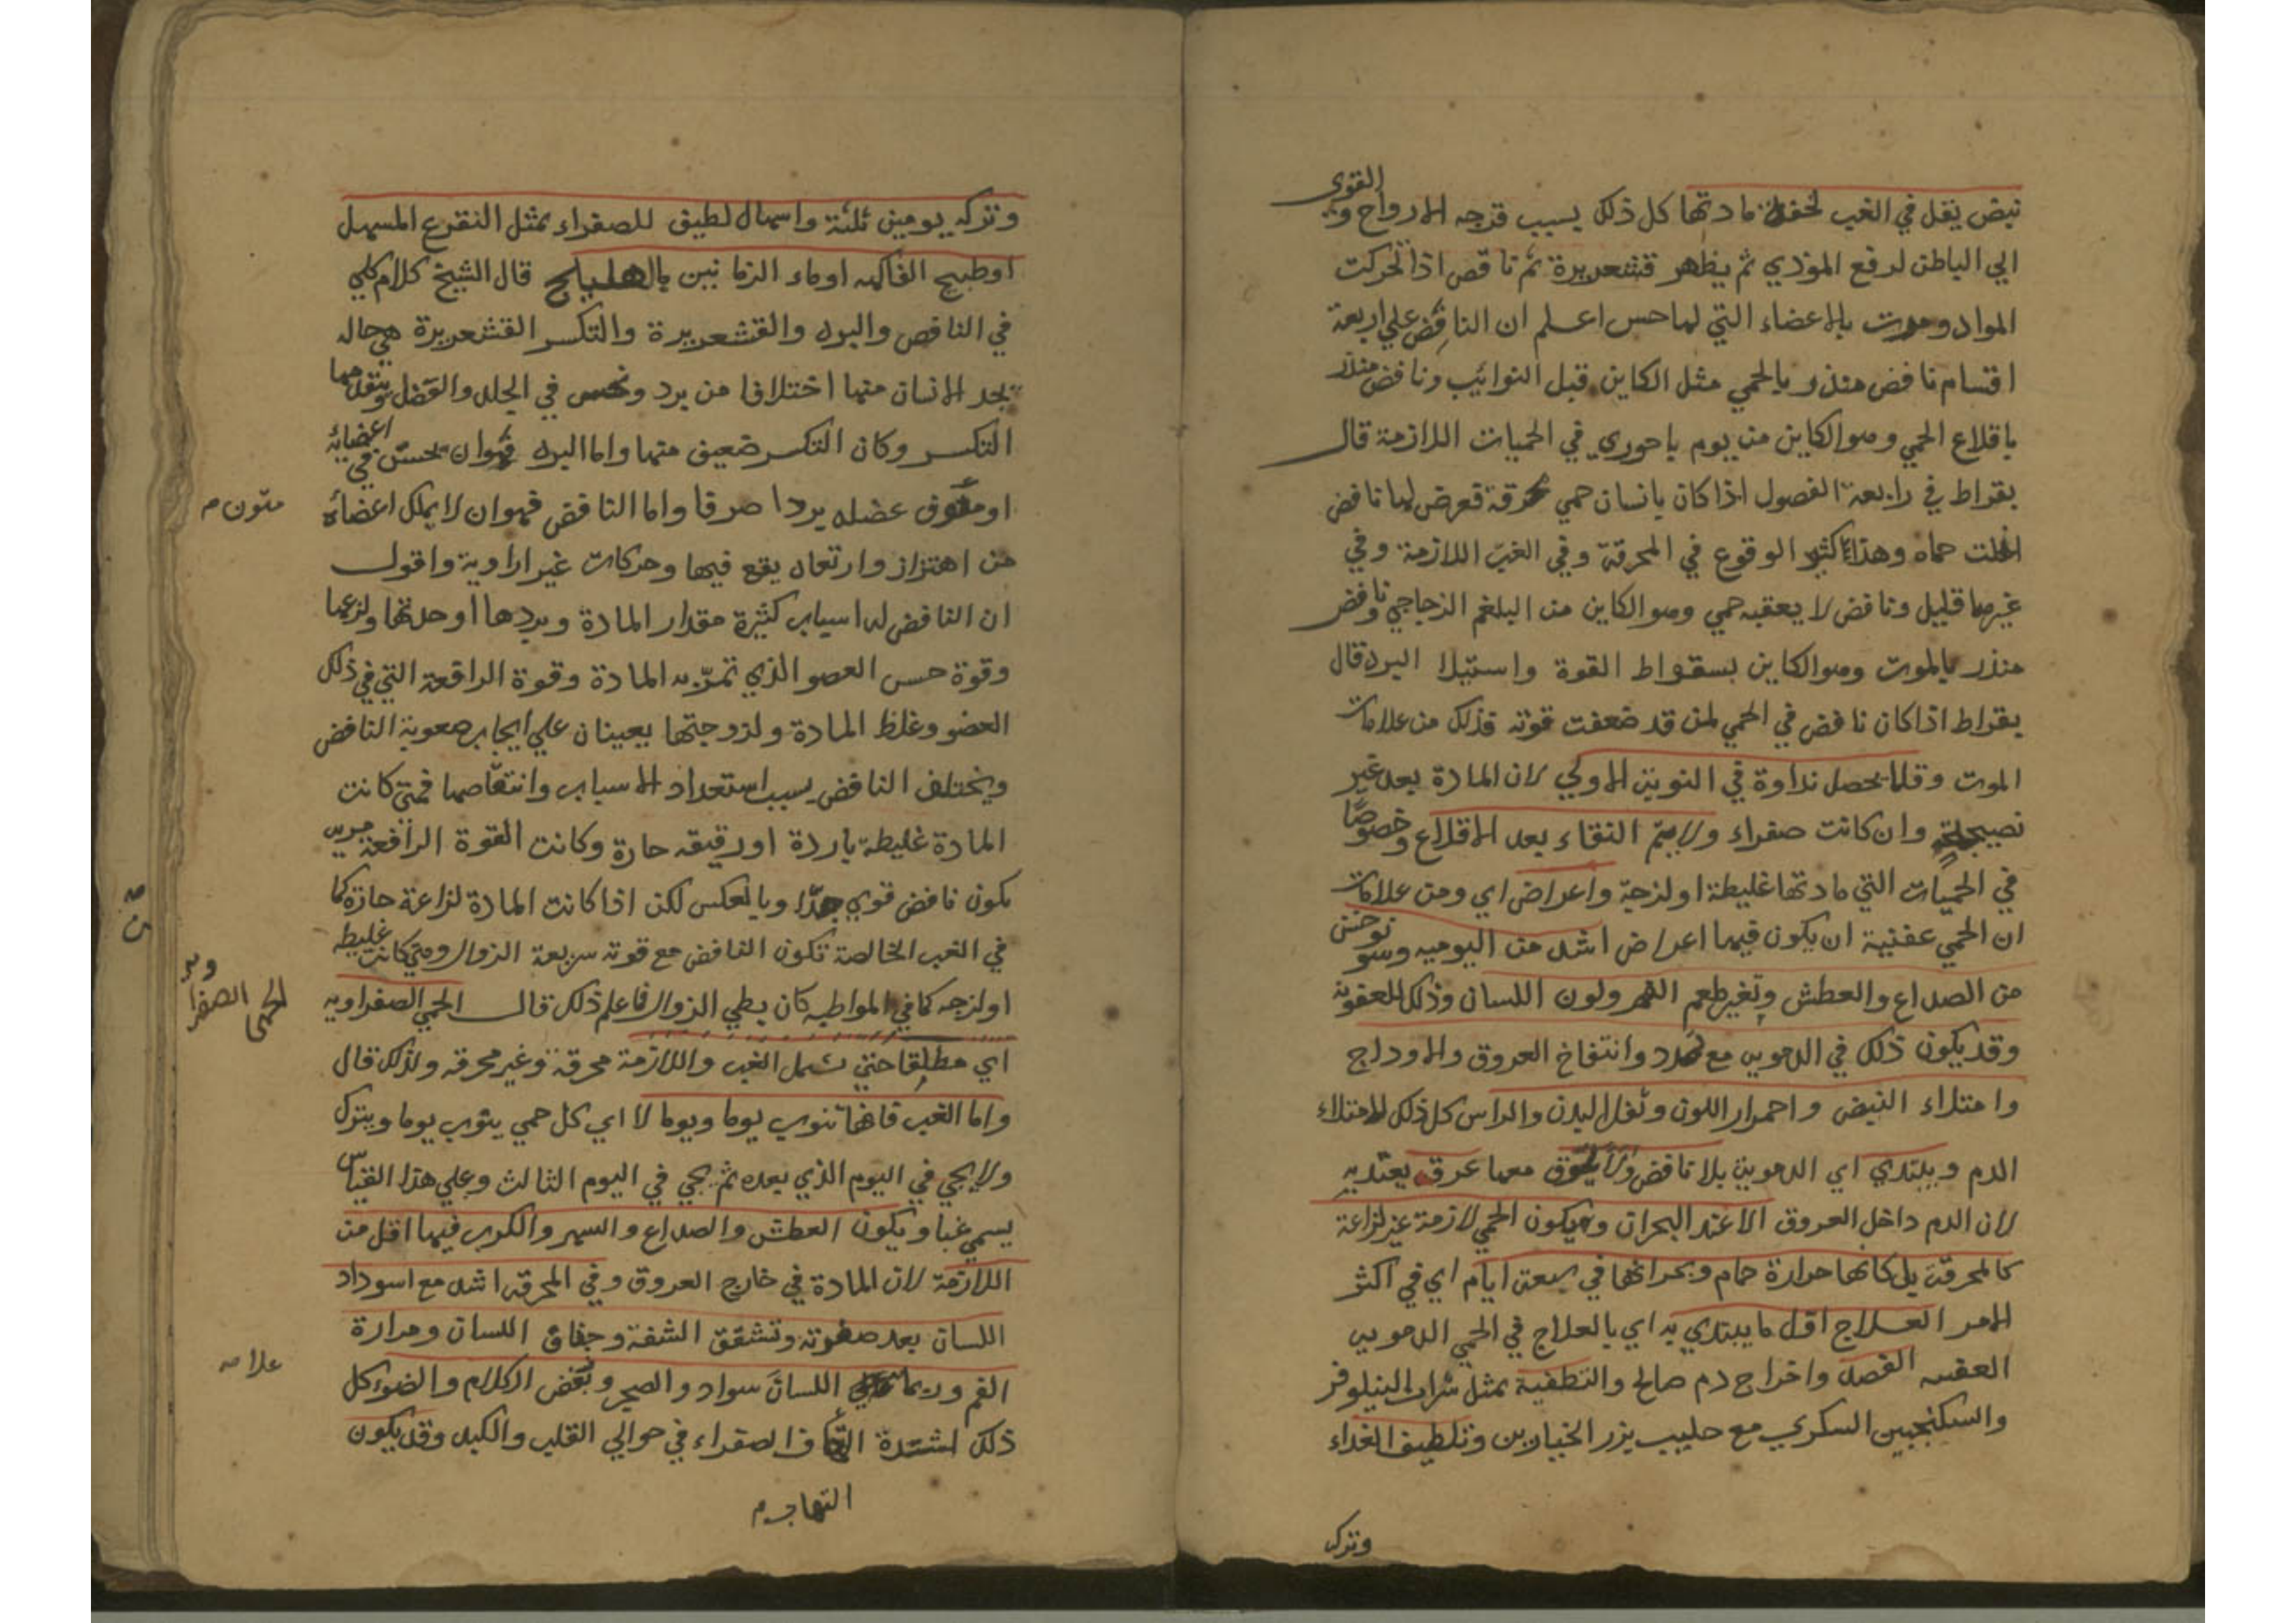 القوى
نبض يقل في الغب لخفة مادتها كل ذلك بسبب توجه الارواح و
الي الباطن لدفع الموذي ثم يظهر قشعريرة ثم نافض اذا تحركت
المواد ومرت بالاعضاء التي لها حس اعلم ان النافض علي اربعة
اقسام نافض منذر بالحمي مثل الكاين قبل النوائب ونافض منذر
باقلاع الحمي وهو الكاين من يوم باحوري في الحميات اللازمة قال
بقراط في رابعة الفصول اذا كان بانسان حمي محرقة فعرض لها نافض
انحلت حماه وهذا كثير الوقوع في المحرقة وفي الغب اللازمة وفي
غيرهما قليل ونافض لا يعقبه حمي وهو الكاين من البلغم الزجاجي ونافض
منذر بالموت وهو الكاين بسقواط القوة واستيلا البرد قال
بقراط اذا كان نافض في الحمي لمن قد ضعفت قوته فذلك من علامات
الموت وقلما يحصل نداوة في النوبة الاولي لان المادة بعد غير
نضيجة وان كانت صفراء ولا يتم النقاء بعد الاقلاع وخصوصًا
في الحميات التي مادتها غليظة او لزجة واعراض اي ومن علامات
ان الحمي عفنية ان يكون فيها اعراض اشد من اليوميه
من الصداع والعطش وتغير طعم الفم ولون اللسان وذلك للعفونة
وقد يكون ذلك في الدموية مع تمدد وانتفاخ العروق والاوداج
وامتلاء النبض واحمرار اللون وثقل البدن والراس كل ذلك لامتلاء
الدم ويبتدي اي الدموية بلا نافض ولا معها عرق يعتد به
لان الدم داخل العروق الا عند البحران ويكون الحمي لازمة غير لزاعة
كالمحرقة بل كانها حرارة حمام وبحرانها في سبعة ايام اي في اكثر
الامر العلاج اول ما يبتدي به اي بالعلاج في الحمي الدموية
العفنيه الفصد واخراج دم صالح والتطفية بمثل شراب النيلوفر
والسكنجبين السكري مع حليب بزر الخيارين وتلطيف الغذاء
وترك
وتركه يومين ثلثة واسهال لطيف للصفراء بمثل النقوع المسهل
او طبيخ الفاكهه او ماء الرمانين بالهليلج قال الشيخ كلام كلي
في النافض والبرد والقشعريرة والتكسر القشعريرة هي حاله
يجد الانسان منها اختلافا من برد ونخس في الجلد والعضل ويتقدمها
التكسر وكان التكسر ضعيف منها واما البرد فهو ان يحس في اعضائه
او متون عضله بردا صرفا واما النافض فهو ان لا يملك اعضائه
متون صه
من اهتزاز وارتعاد يقع فيها وحركات غير ارادية واقول
ان النافض له اسباب كثيرة مقدار المادة وبردها او حدتها ولزعها
وقوة حس العضو الذي تمر به المادة وقوة الدافعة التي في ذلك
العضو وغلظ المادة ولزوجتها يعينان علي ايجاب صعوبة النافض
ويختلف النافض بسبب استعداد الاسباب وانتقاصها فمتي كانت
المادة غليظة باردة او رقيقه حارة وكانت القوة الدافعة
يكون نافض قوي جدًا وبالعكس لكن اذا كانت المادة لزاعة حارة كما
في الغب الخالصة تكون النافض مع قوته سريعة الزوال ومتي كانت غليظه
او لزجه كما في المواظبه كان بطي الزوال فاعلم ذلك قال الحمي الصفراويه
الحمى الصفرا
اي مطلقا حتي يشمل الغب واللازمة محرقة وغير محرقه ولذلك قال
واما الغب فانها تنوب يوما ويوما لا اي كل حمي ينوب يوما ويترك
ولا يجي في اليوم الذي بعده ثم يجي في اليوم الثالث وعلي هذا القياس
يسمي غبا ويكون العطش والصداع والسهر والكرب فيها اقل من
اللازمة لان المادة في خارج العروق وفي المحرقه اشد مع اسوداد
اللسان بعد صفوته وتشقق الشفة وجفاف اللسان ومرارة
علا صه
الفم وربما اللسان سواد والضجر وبغض الكلام والضوء كل
ذلك لشدة الصفراء في حوالي القلب والكبد وقد يكون
التهاب م